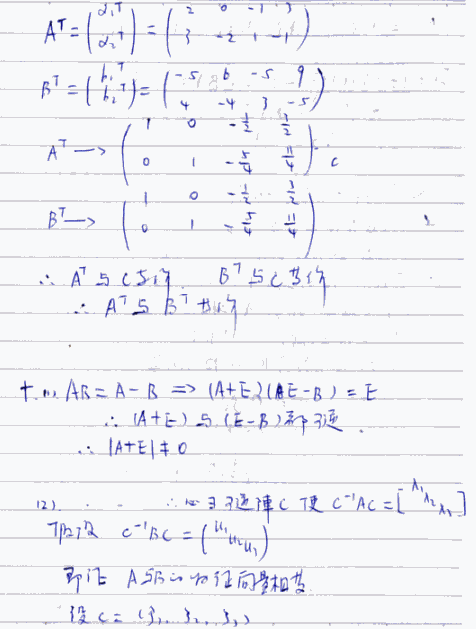 A^T = (α₁^T α₂^T) = (2 0 -1 3
3 -2 1 -1)
B^T = (b₁^T b₂^T) = (-5 6 -5 9
4 -4 3 -5)
A^T → (1 0 -1/2 3/2
0 1 -5/4 11/4) C
B^T → (1 0 -1/2 3/2
0 1 -5/4 11/4)
∴ A^T 与 C 等价 B^T 与 C 等价
∴ A^T 与 B^T 等价
十. (1) AB = A - B ⇒ (A+E)(E-B) = E
∴ (A+E) 与 (E-B) 都可逆
∴ |A+E| ≠ 0
(2) ∴ 可逆阵 C 使 C⁻¹AC = [λ₁ λ₂ λ₃]
下证 C⁻¹BC = (u₁ u₂ u₃)
即证 A与B 特征向量相等
设 C = (ξ₁, ξ₂, ξ₃)